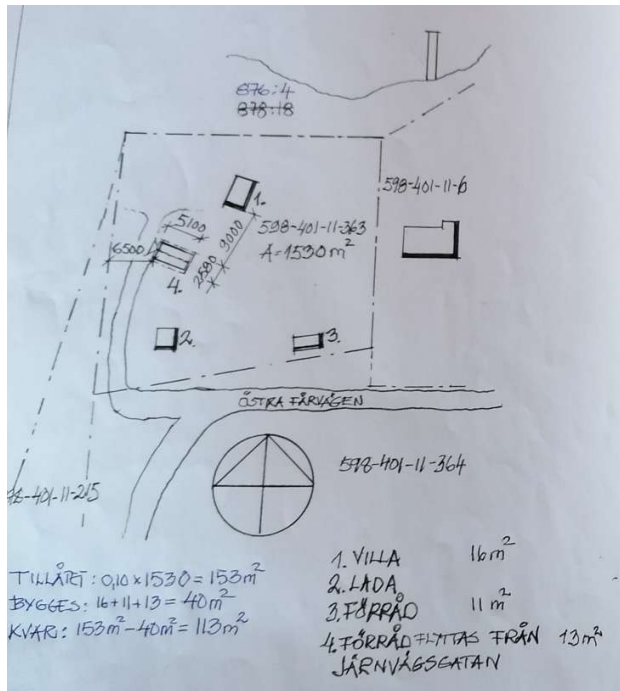 876:4
878:18
598-401-11-6
1.
5100
598-401-11-363
A=1530 m²
6500
2580 9000
4.
2.
3.
ÖSTRA FÄRVÄGEN
598-401-11-364
-401-11-215
TILLÅTET: 0,10 x 1530 = 153 m²
BYGGES: 16+11+13 = 40 m²
KVAR: 153 m² - 40 m² = 113 m²
1. VILLA 16 m²
2. LADA
3. FÖRRÅD 11 m²
4. FÖRRÅD FLYTTAS FRÅN 13 m²
JÄRNVÄGSGATAN